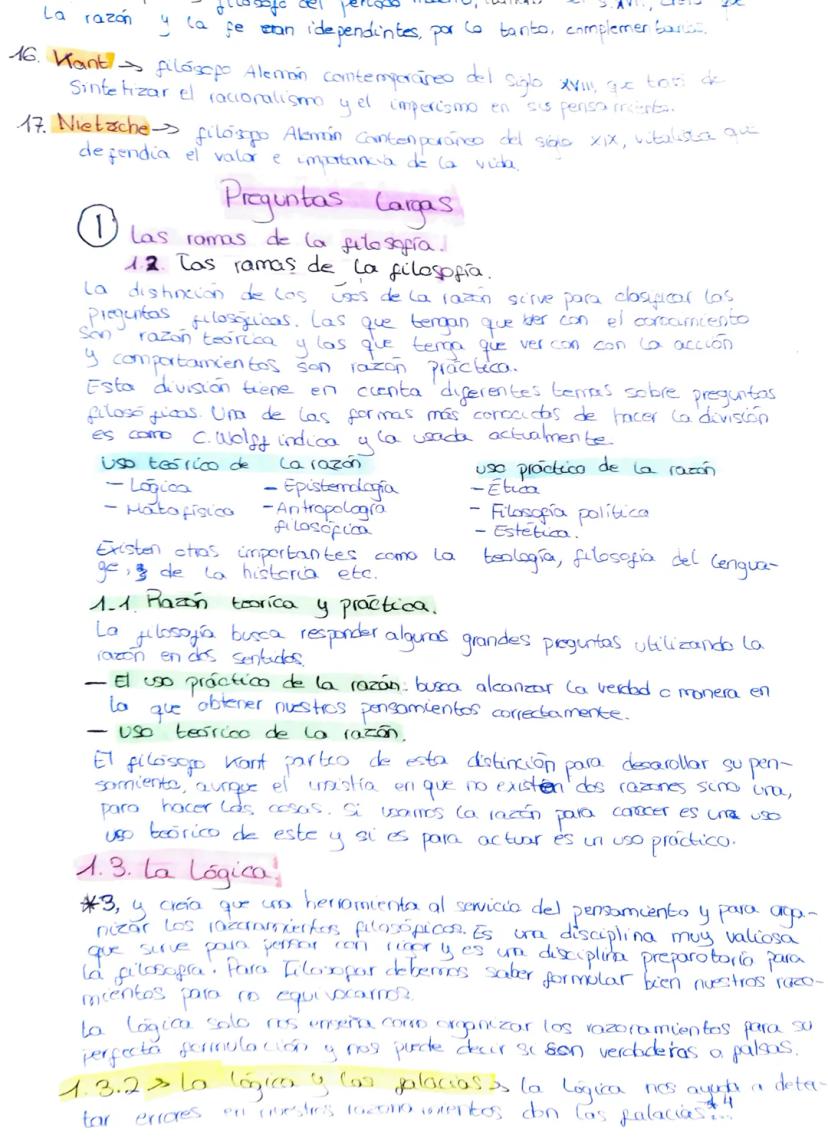 filósofo del periodo
La razón y la fe eran idependintes, por lo tanto, complementarias.
16. Kant → filósofo Alemán contemporáneo del siglo XVIII, que trató de
Sintetizar el racioralismo y el imperismo en sus pensamiento.
17. Nietzche → filósofo Alemán contemporáneo del siglo XIX, vitalista que
defendia el valor e importancia de la vida.
Preguntas Largas
1 Las ramas de la filosofía.
1.2. Las ramas de la filosofía.
La distinción de los usos de la razón sirve para clasificar las
preguntas filosóficas. Las que tengan que ver con el conocimiento
son razón teórica y las que tenga que ver con con la acción
y comportamientos son razón práctica.
Esta división tiene en cuenta diferentes temas sobre preguntas
filosóficas. Una de las formas más conocidas de hacer la división
es como C. Wolff indica y la usada actualmente.
uso teórico de la razón uso práctico de la razón
- Lógica - Epistemología - Ética
- Metafísica - Antropología - Filosofía política
filosófica - Estética.
Existen otras importantes como la teología, filosofia del lengua-
ge, de la historia etc.
1.1. Razón teoríca y práctica.
La filosofía busca responder algunas grandes preguntas utilizando la
razón en dos sentidos.
- El uso práctico de la razón: busca alcanzar la verdad o manera en
la que obtener nuestros pensamientos correctamente.
- Uso teórico de la razón.
El filósofo Kant partió de esta distinción para desarollar su pen-
samiento, aunque el insistía en que no existen dos razones sino una,
para hacer las cosas. Si usamos la razón para conocer es una uso
uso teórico de este y si es para actuar es un uso práctico.
1.3. La Lógica.
*3, y creía que una herramienta al servicio del pensamiento y para orga-
nizar los razonamientos filosóficos. Es una disciplina muy valiosa
que sirve para pensar con rigor y es una disciplina preparatoria para
la filosofía. Para Filosofar debemos saber formular bien nuestros razo-
mientos para no equivocarnos.
La Lógica solo nos enseña como organizar los razonamientos para su
perfecta formulación y nos puede decir si son verdaderas o falsas.
1.3.2 > La lógica y las falacias > la Lógica nos ayuda a detec-
tar errores en nuestros razonamientos con las falacias*4...